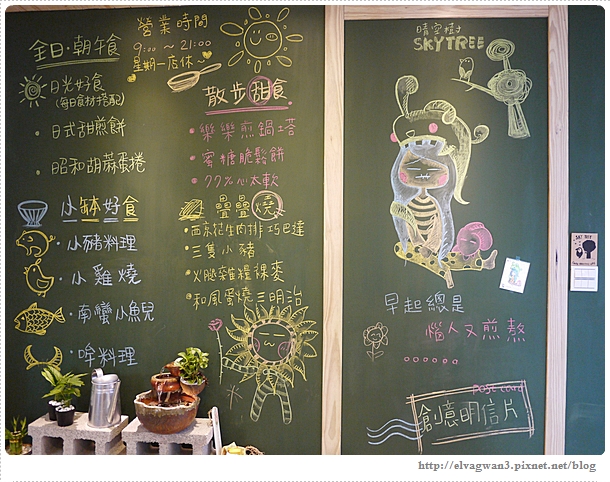 營業時間
9:00 ~ 21:00
星期一店休~
全日·朝午食
日光好食
(每日食材搭配)
·日式甜煎餅
·昭和胡蔴蛋捲
散步甜食
·樂樂煎鍋塔
·蜜糖脆鬆餅
·77%心太軟
小缽好食
·小豬料理
·小雞燒
·南蠻小魚兒
·哞料理
疊疊燒
·西京花生肉排巧巴達
·三隻小豬
·火腿雜糧裸麥
·和風蛋燒三明治
晴空樹
SKYTREE
早起總是
惱人又煎熬
......
POST CARD
創意明信片
http://elvagwan3.pixnet.net/blog